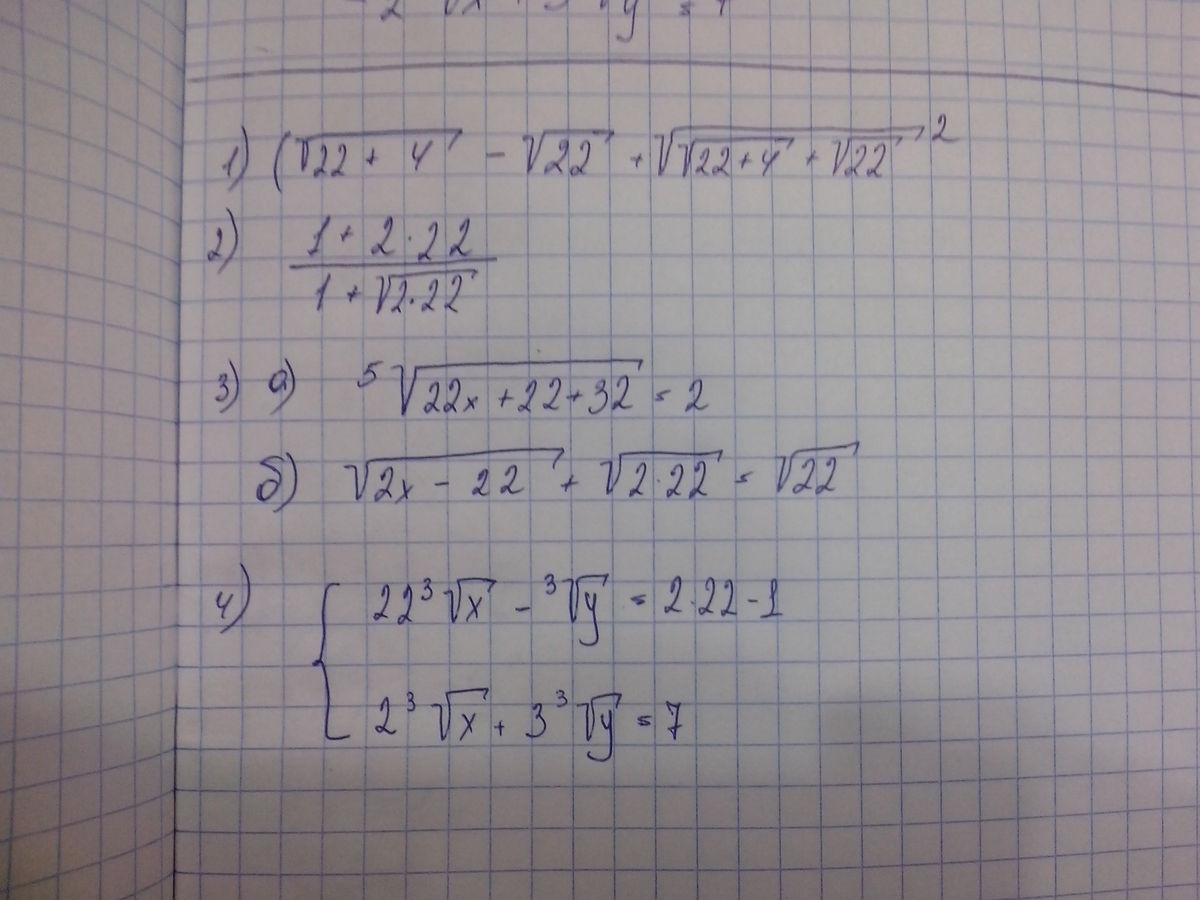 1) (√22 + 4 - √22 + √√22+4 + √22 ²
2) 1 + 2·22
1 + √2·22
3) а) ⁵√22x + 22 + 32 = 2
б) √2x - 22 + √2·22 = √22
4) { 22 ³√x - ³√y = 2·22 - 1
2 ³√x + 3 ³√y = 7